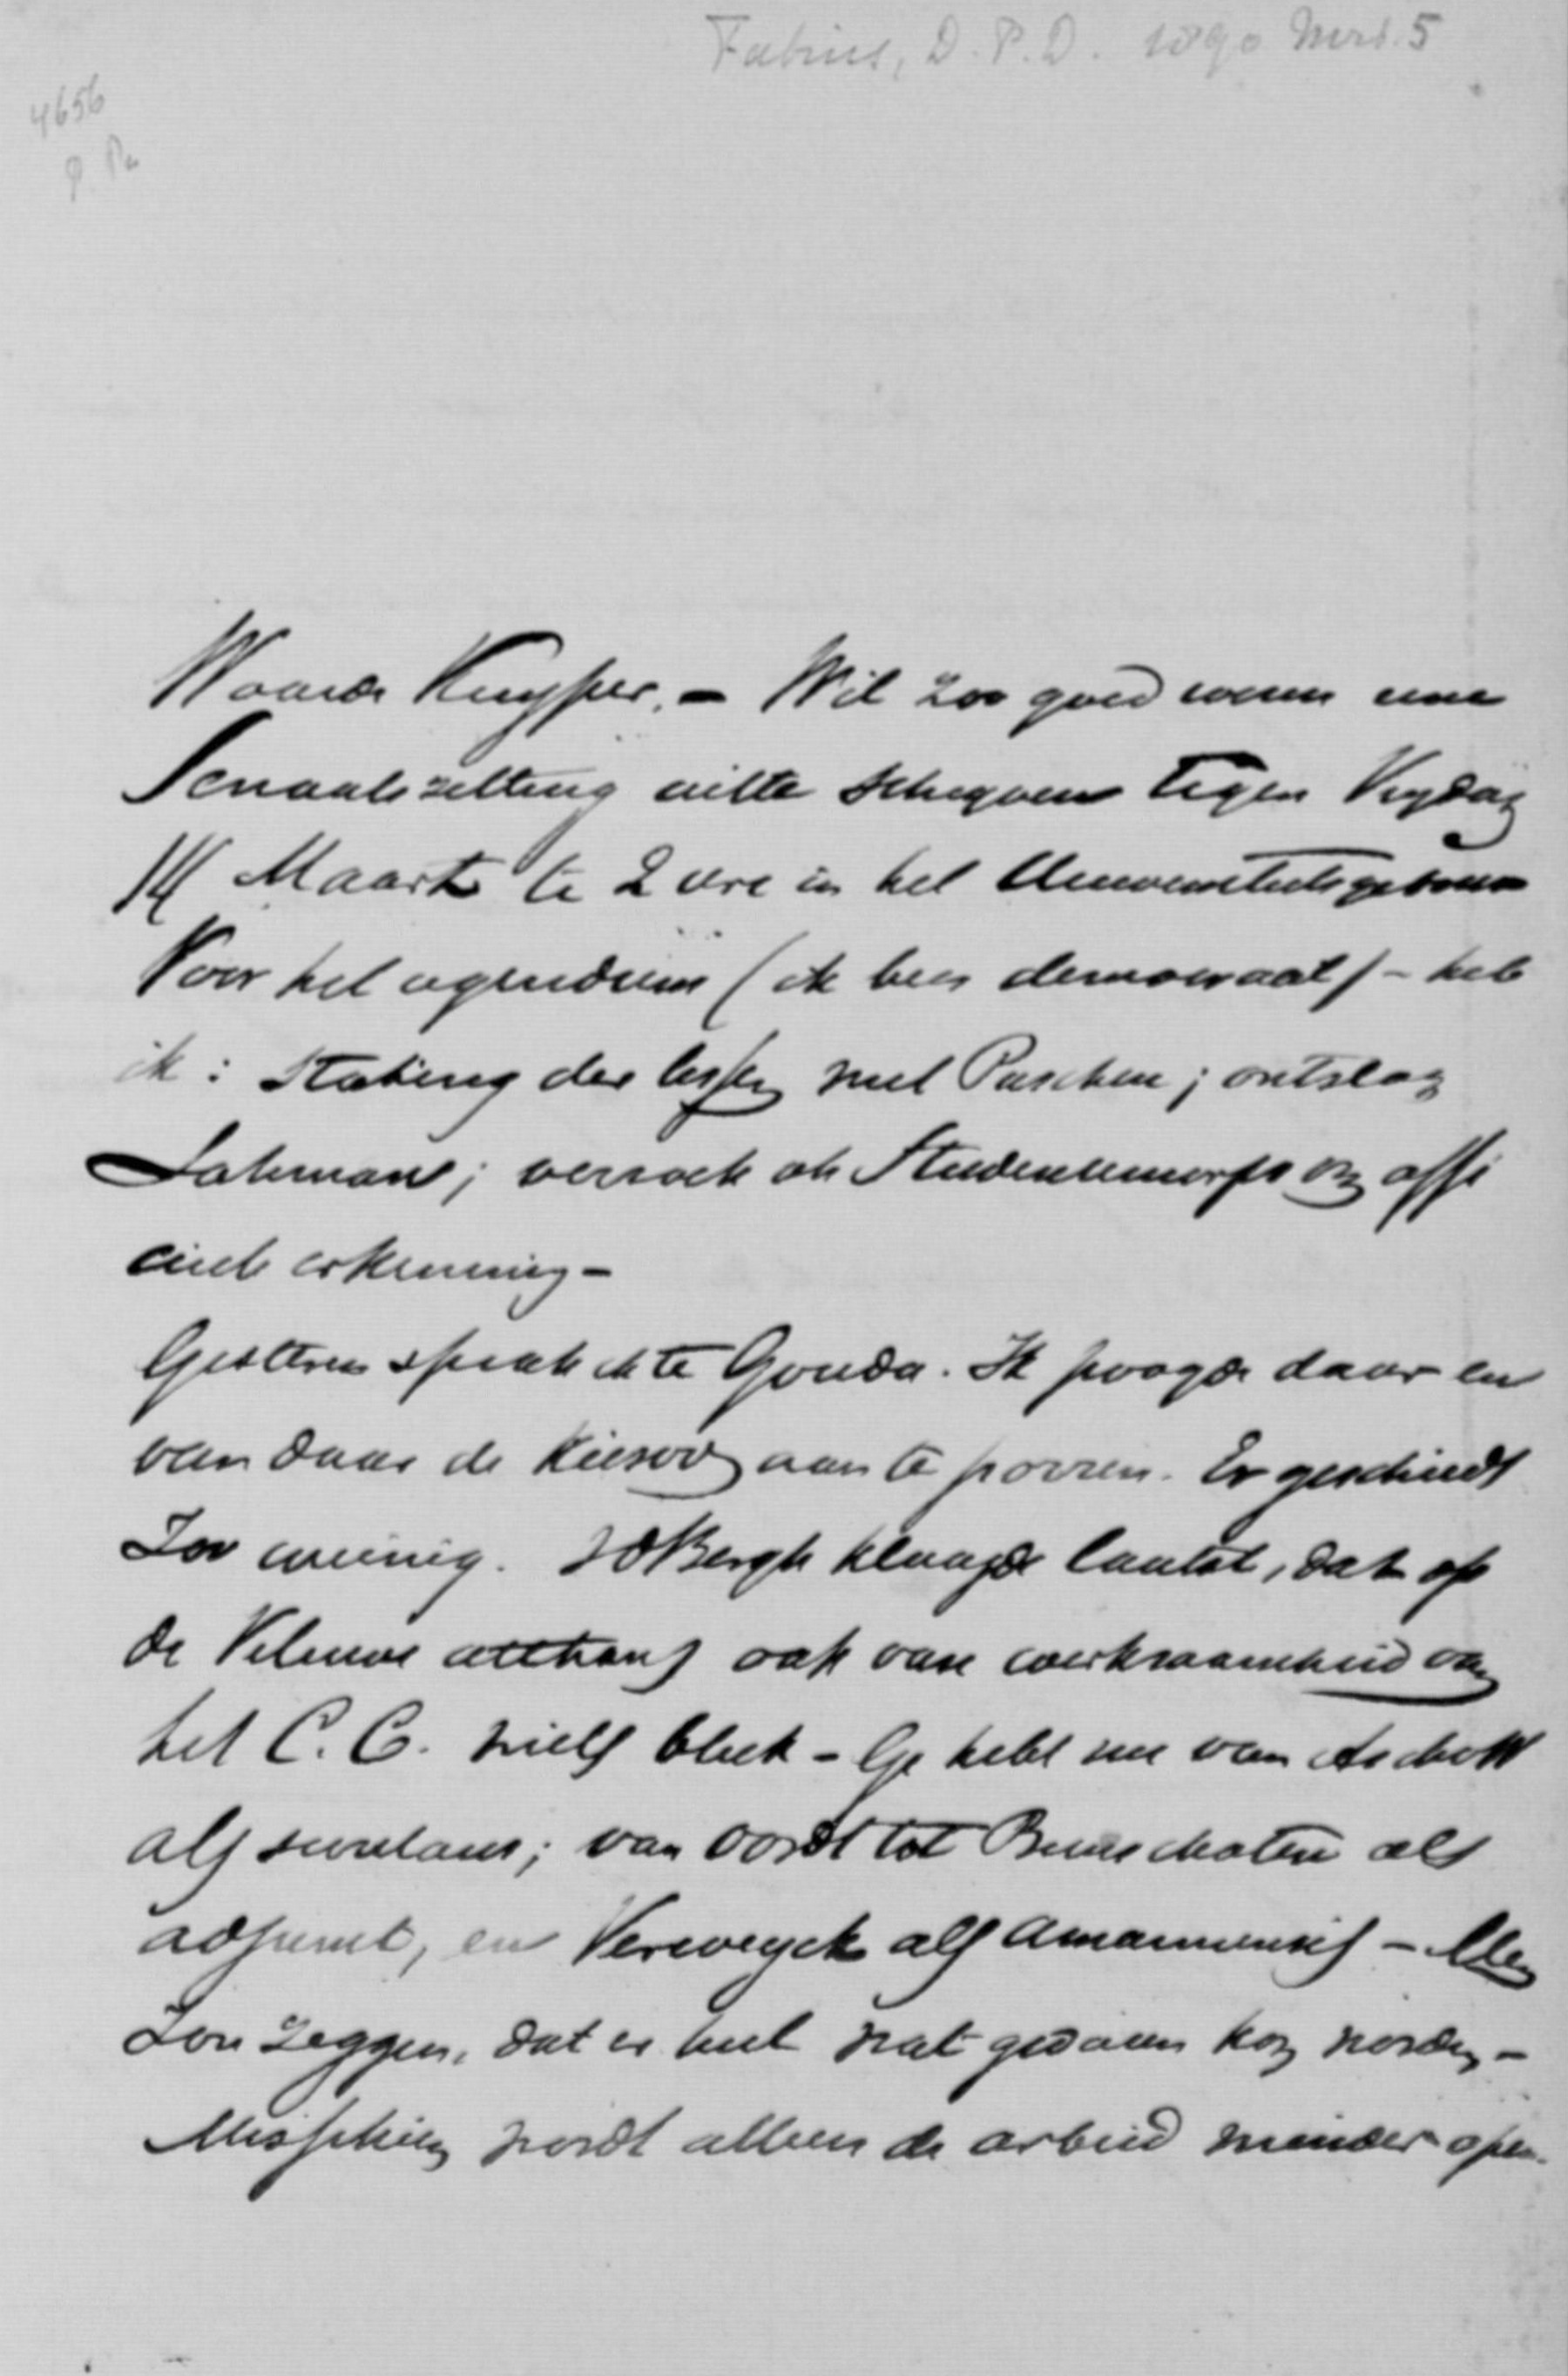 Fabius, D.P.D. 1890 Mrt. 5
4656
Waarde Kuyper. – Wil zoo goed wezen eene
Senaatszitting uitte schryven tegen Vrydag
14 Maart te 2 ure in het Universiteitsgebouw
Voor het agendum (ik ben democraat) – heb
ik: Staking der lessen met Paschen; ontslag
Lohman; verzoek ok Studentencorps om offi
cieele erkenning –
Gisteren sprak ik te Gouda. Ik poogde daar en
van daar de kiesver aan te porren. Er geschiedt
Zoo weinig. vdBergh klaagde laatst, dat op
de Veluwe althans ook van werkzaamheid van
het C.C. niets bleek – Ge hebt nu van Asch
als secretaris; van Oordt tot Bunschoten als
adjunct, en Verweyck als amanuensis – Men
Zou zeggen, dat er heel wat gedaan kon worden –
Misschien wordt alleen de arbeid minder open-